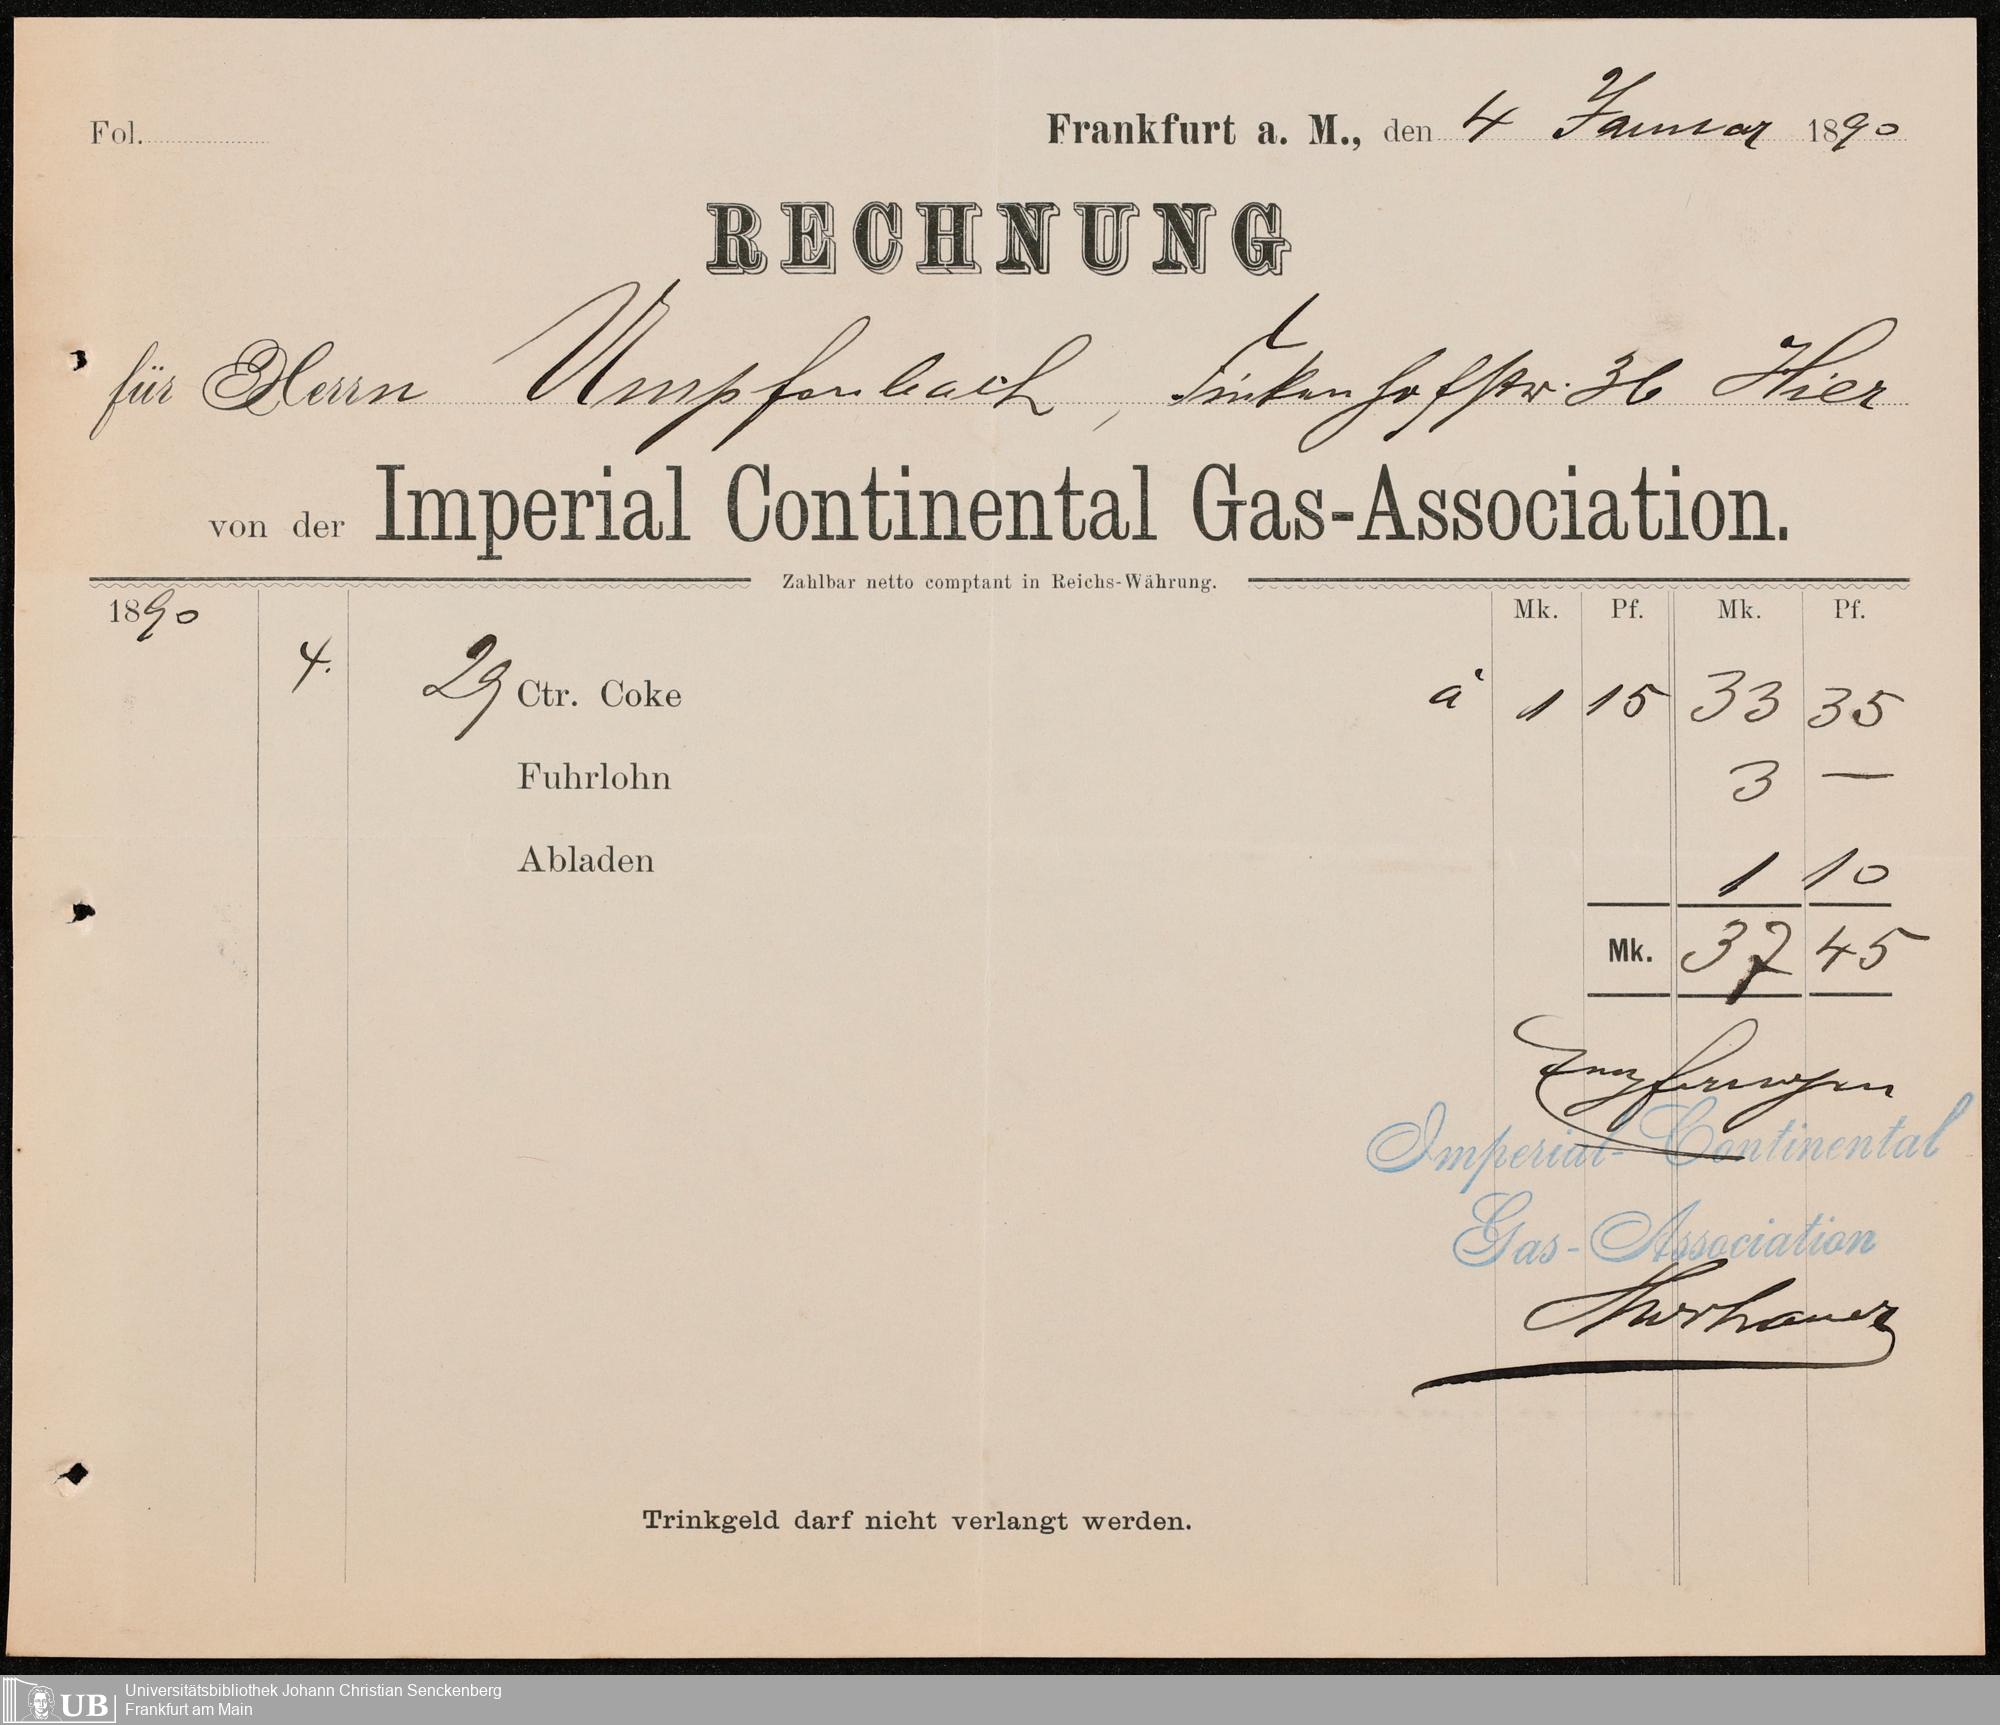 Fol.
Frankfurt a. M., den 4 Januar 1890
RECHNUNG
für Herrn Umpfenbach, Finkenhofstr. 36 Hier
von der Imperial Continental Gas-Association.
Zahlbar netto comptant in Reichs-Währung.
1890 Mk. Pf. Mk. Pf.
4. 29 Ctr. Coke à 1 15 33 35
Fuhrlohn 3 —
Abladen 1 10
Mk. 37 45
Empfangen
Imperial-Continental
Gas-Association
Trinkgeld darf nicht verlangt werden.
UB
Universitätsbibliothek Johann Christian Senckenberg
Frankfurt am Main